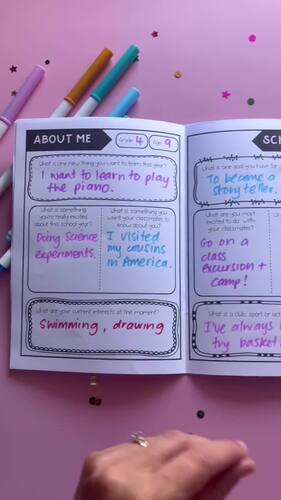 ABOUT ME
Grade 4
Age 9
What is one new thing you want to learn this year?
I want to learn to play
the piano.
What is something
you're really excited
about this school year?
Doing Science
experiments.
What is something you
want your classmates to
know about you?
I visited
my cousins
in America.
What are your current interests at the moment?
Swimming, drawing
SC
What is one goal you have for
To become a
story teller.
What are you most
excited to do with
your classmates?
Go on a
class
excursion +
camp!
What is a club, sport or act
I've always
try basket